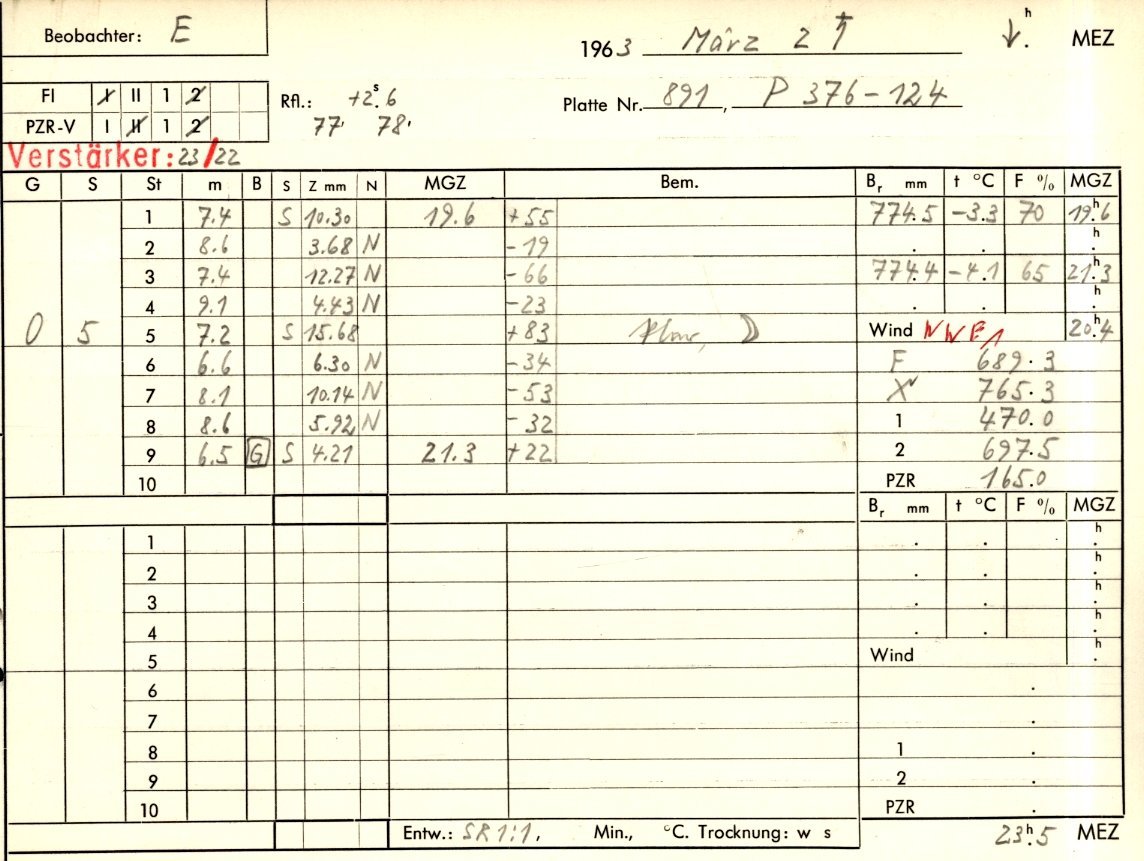 Beobachter: E
1963 März 2 h MEZ
FI I II 1 2
PZR-V I II 1 2
Rfl.: +2s.6
77' 78'
Platte Nr. 891, P 376-124
Verstärker: 23/22
G S St m B S Z mm N MGZ Bem. Br mm t °C F % MGZ
1 7.4 S 10.30 19.6 +55 774.5 -3.3 70 19h.6
2 8.6 3.68 N -19 . . h.
3 7.4 12.27 N -66 774.4 -4.1 65 21h.3
4 9.1 4.43 N -23 . . h.
0 5 5 7.2 S 15.68 +83 Wind 20h.4
6 6.6 6.30 N -34 F 689.3
7 8.1 10.14 N -53 X 765.3
8 8.6 5.92 N -32 1 470.0
9 6.5 G S 4.21 21.3 +22 2 697.5
10 PZR 165.0
Br mm t °C F % MGZ
1 . . h.
2 . . h.
3 . . h.
4 . . h.
5 Wind h.
6 .
7 .
8 1 .
9 2 .
10 PZR .
Entw.: SR 1:1, Min., °C. Trocknung: w s 23h.5 MEZ